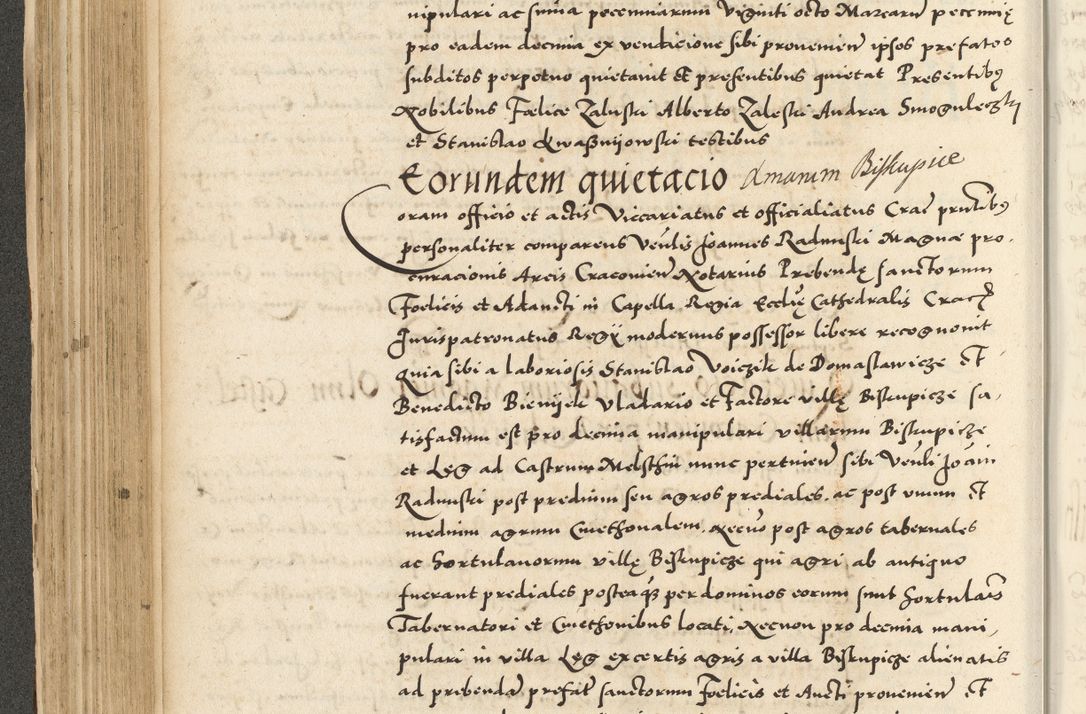 nipulari ac suma pecenniarum viginti octo Marcarū pecunię
pro eadem decima ex vendicione sibi provenien̄ ipsos prefatos
subditos perpetuo quietavit Et presentibus quietat Presentibq
Nobilibus Foelice Zaluski Alberto Zaleski Andrea Smoguleczki
et Stanislao Kwaßnijowski testibus
Eorundem quietacio
Coram officio et actis Viccariatus et officialiatus Crac̄ prn̄tibq
personaliter comparens Ven̄lis Joannes Radunski Magnæ pro
curacionis Arcis Cracovien̄ Notarius Prebendę sanctorum
Foelicis et Adaucti in Capella Regia Ecclię Cathedralis Crac̄
Jurispatronatus Regÿ modernus possessor libere recognovit
Quia sibi a laboriosis Stanislao Voiczik de Domaslawicze Et
Benedicto Bienijek Vladario et Factore villę Biskupicze sa
tisfactum est pro decima manipulari villarum Biskupicze
et Lęg ad Castrum Melschin nunc pertinen̄ sibi Ven̄li Joān̄i
Radunski post predium seu agros prediales, ac post unum Et
medium agrum Cmethonalem, Necn̄o post agros tabernales
ac hortulanorum villę Biskupicze qui agri ab antiquo
fuerant prediales posteaq̨ per dominos eorum sunt hortulan̄is
Tabernatori et Cmethonibus locati, Necnon pro decima mani
pulari in villa Lęg ex certis agris a villa Biskupicze alienatis
ad prebendā prefat̄ sanctorum Foelicis et Aucti provenien̄ Et